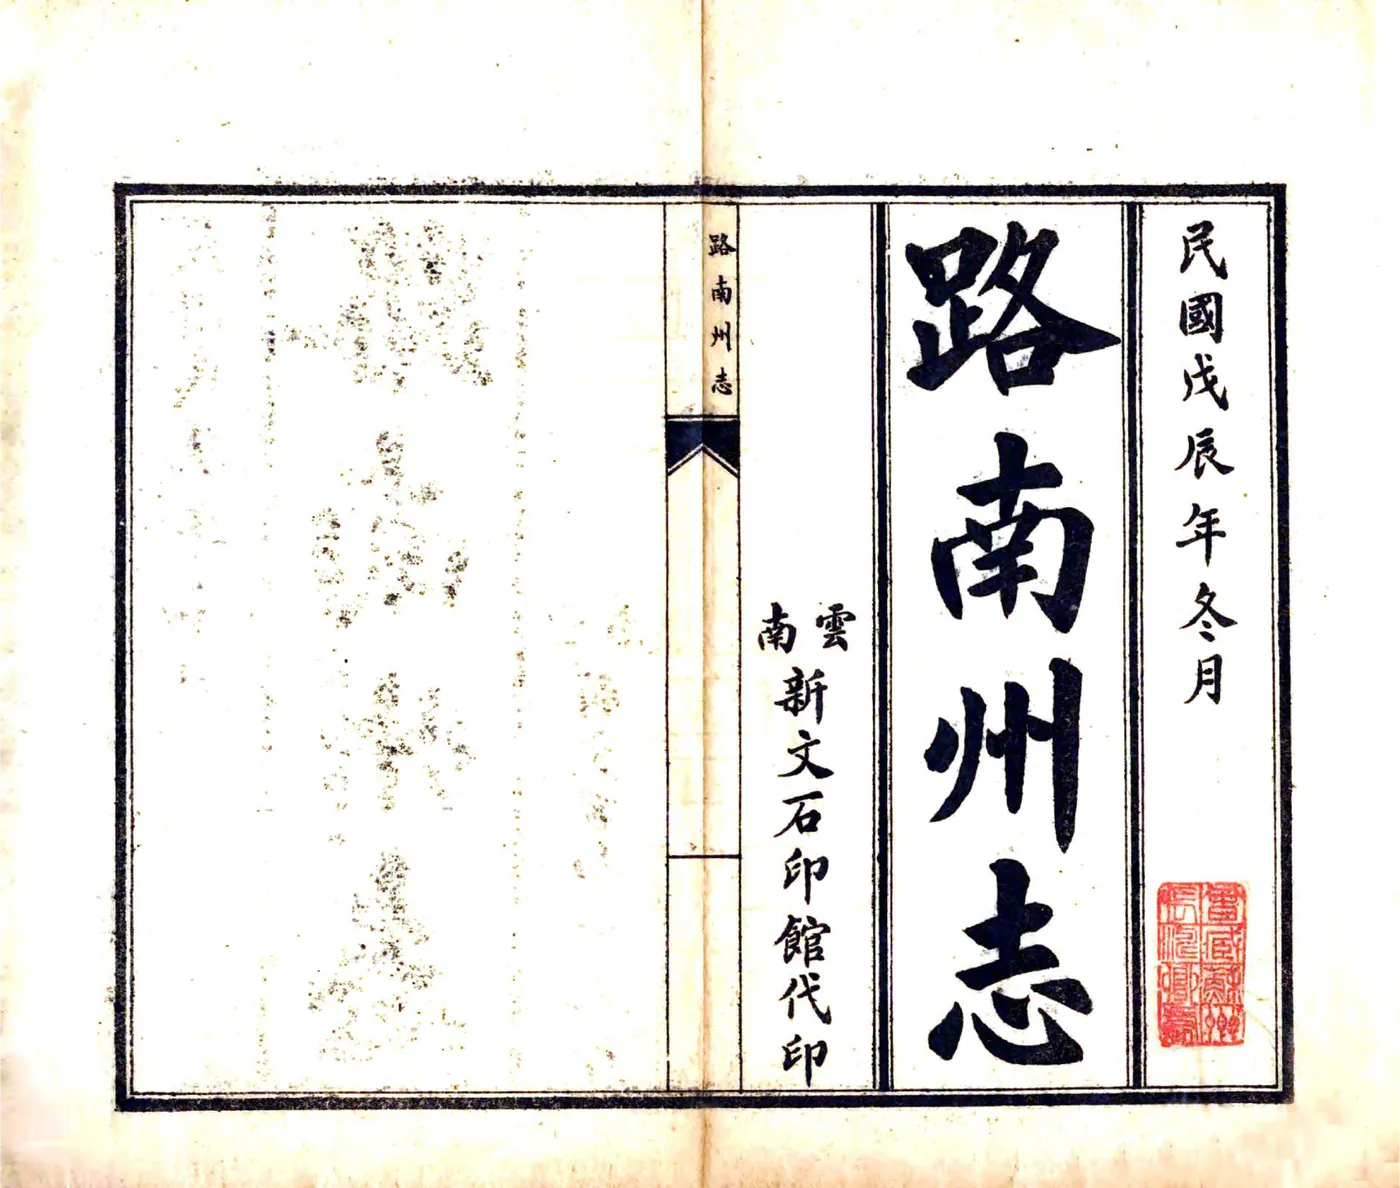 民國戊辰年冬月
路南州志
雲南
新文石印館代印
路南州志